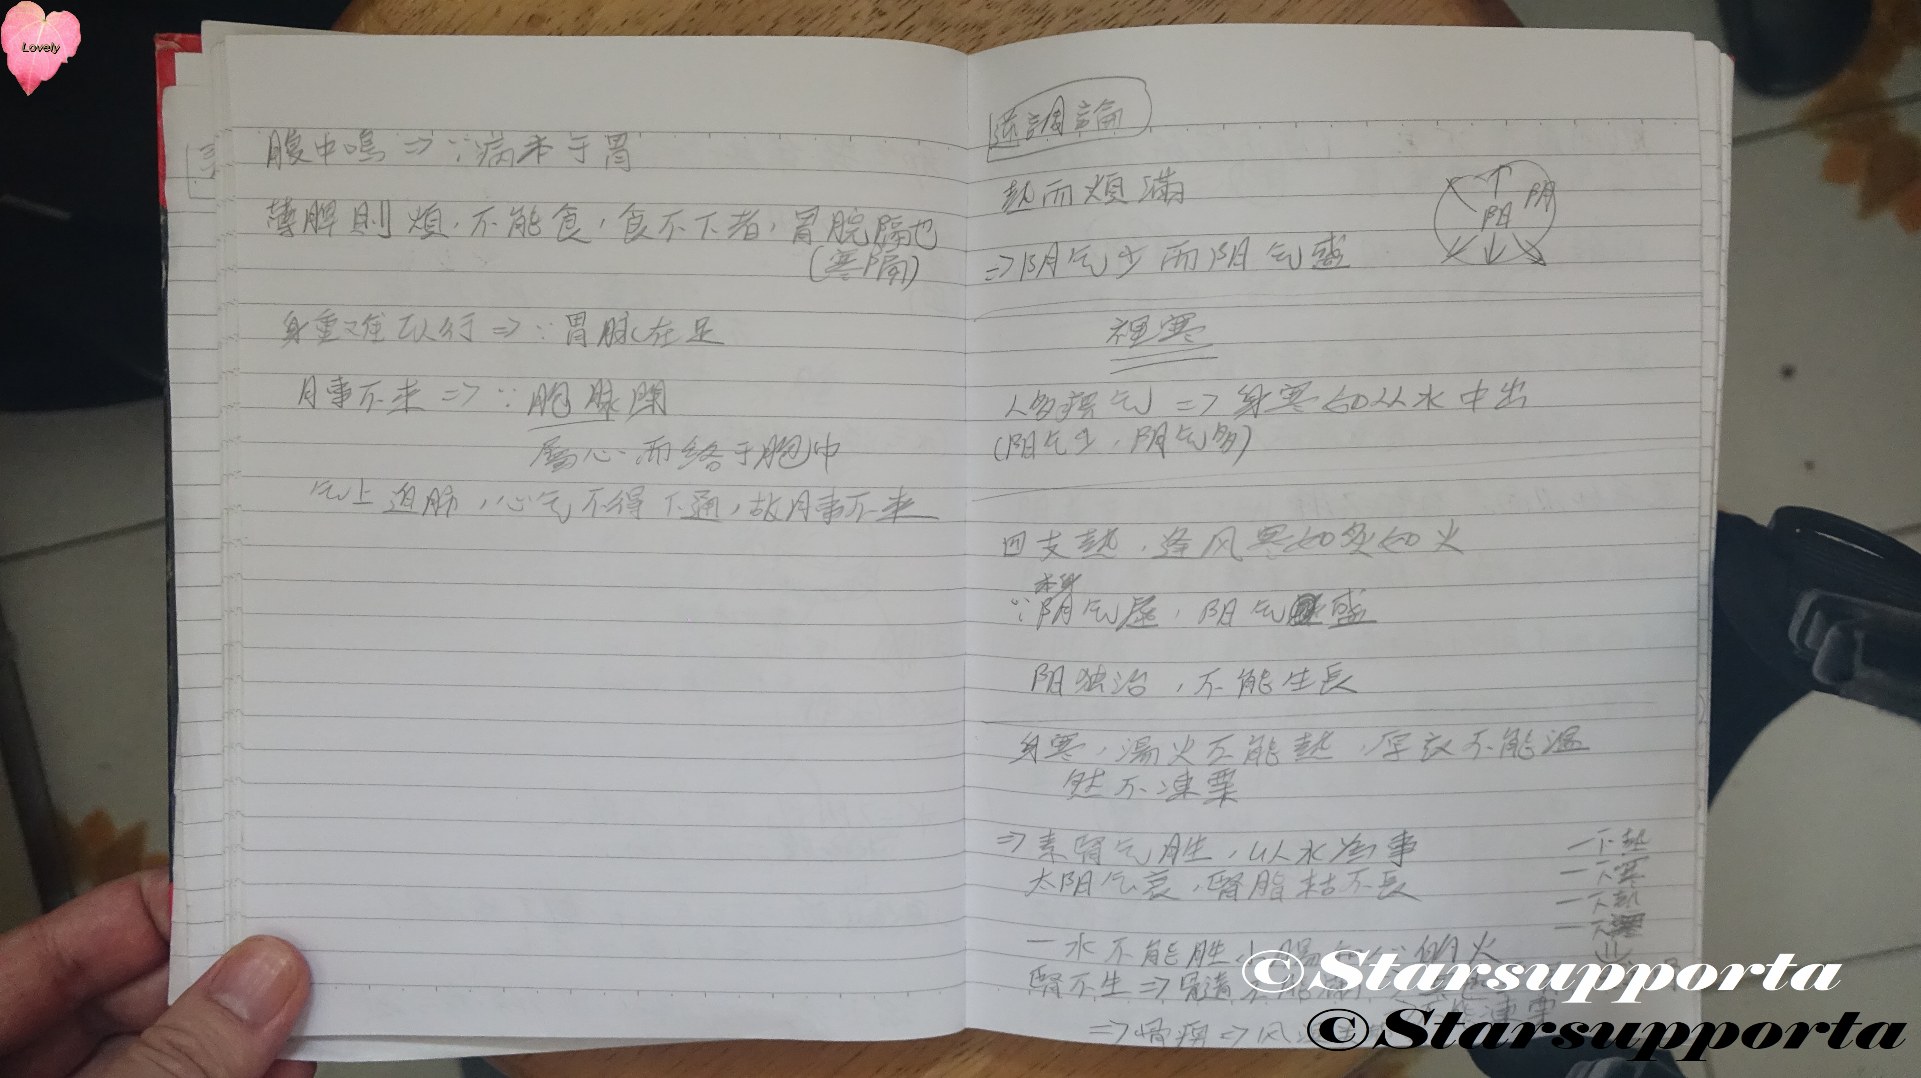 Lovely
腹中鳴⇒∵病本于胃
薄脾則煩,不能食,食不下者,胃脘隔也
(寒隔)
身重难以行⇒∵胃脉在足
月事不来⇒∵胞脉閉
屬心而络于胞中
气上迫肺,心气不得下通,故月事不来
逆調論
熱而煩滿
阳 阴
⇒阴气少而阳气盛
裡寒
人多痹气⇒身寒如从水中出
(阳气少,阴气多)
四支熱,逢风寒如炙如火
本身
∵阴气虛,阳气盛
阳独治,不能生長
身寒,湯火不能熱,厚衣不能温
然不凍栗
⇒素腎气胜,以水為事
太阳气衰,腎脂枯不長
一水不能胜
腎不生⇒
⇒骨痹⇒风
一下熱
一下寒
一下熱
©Starsupporta
©Starsupporta